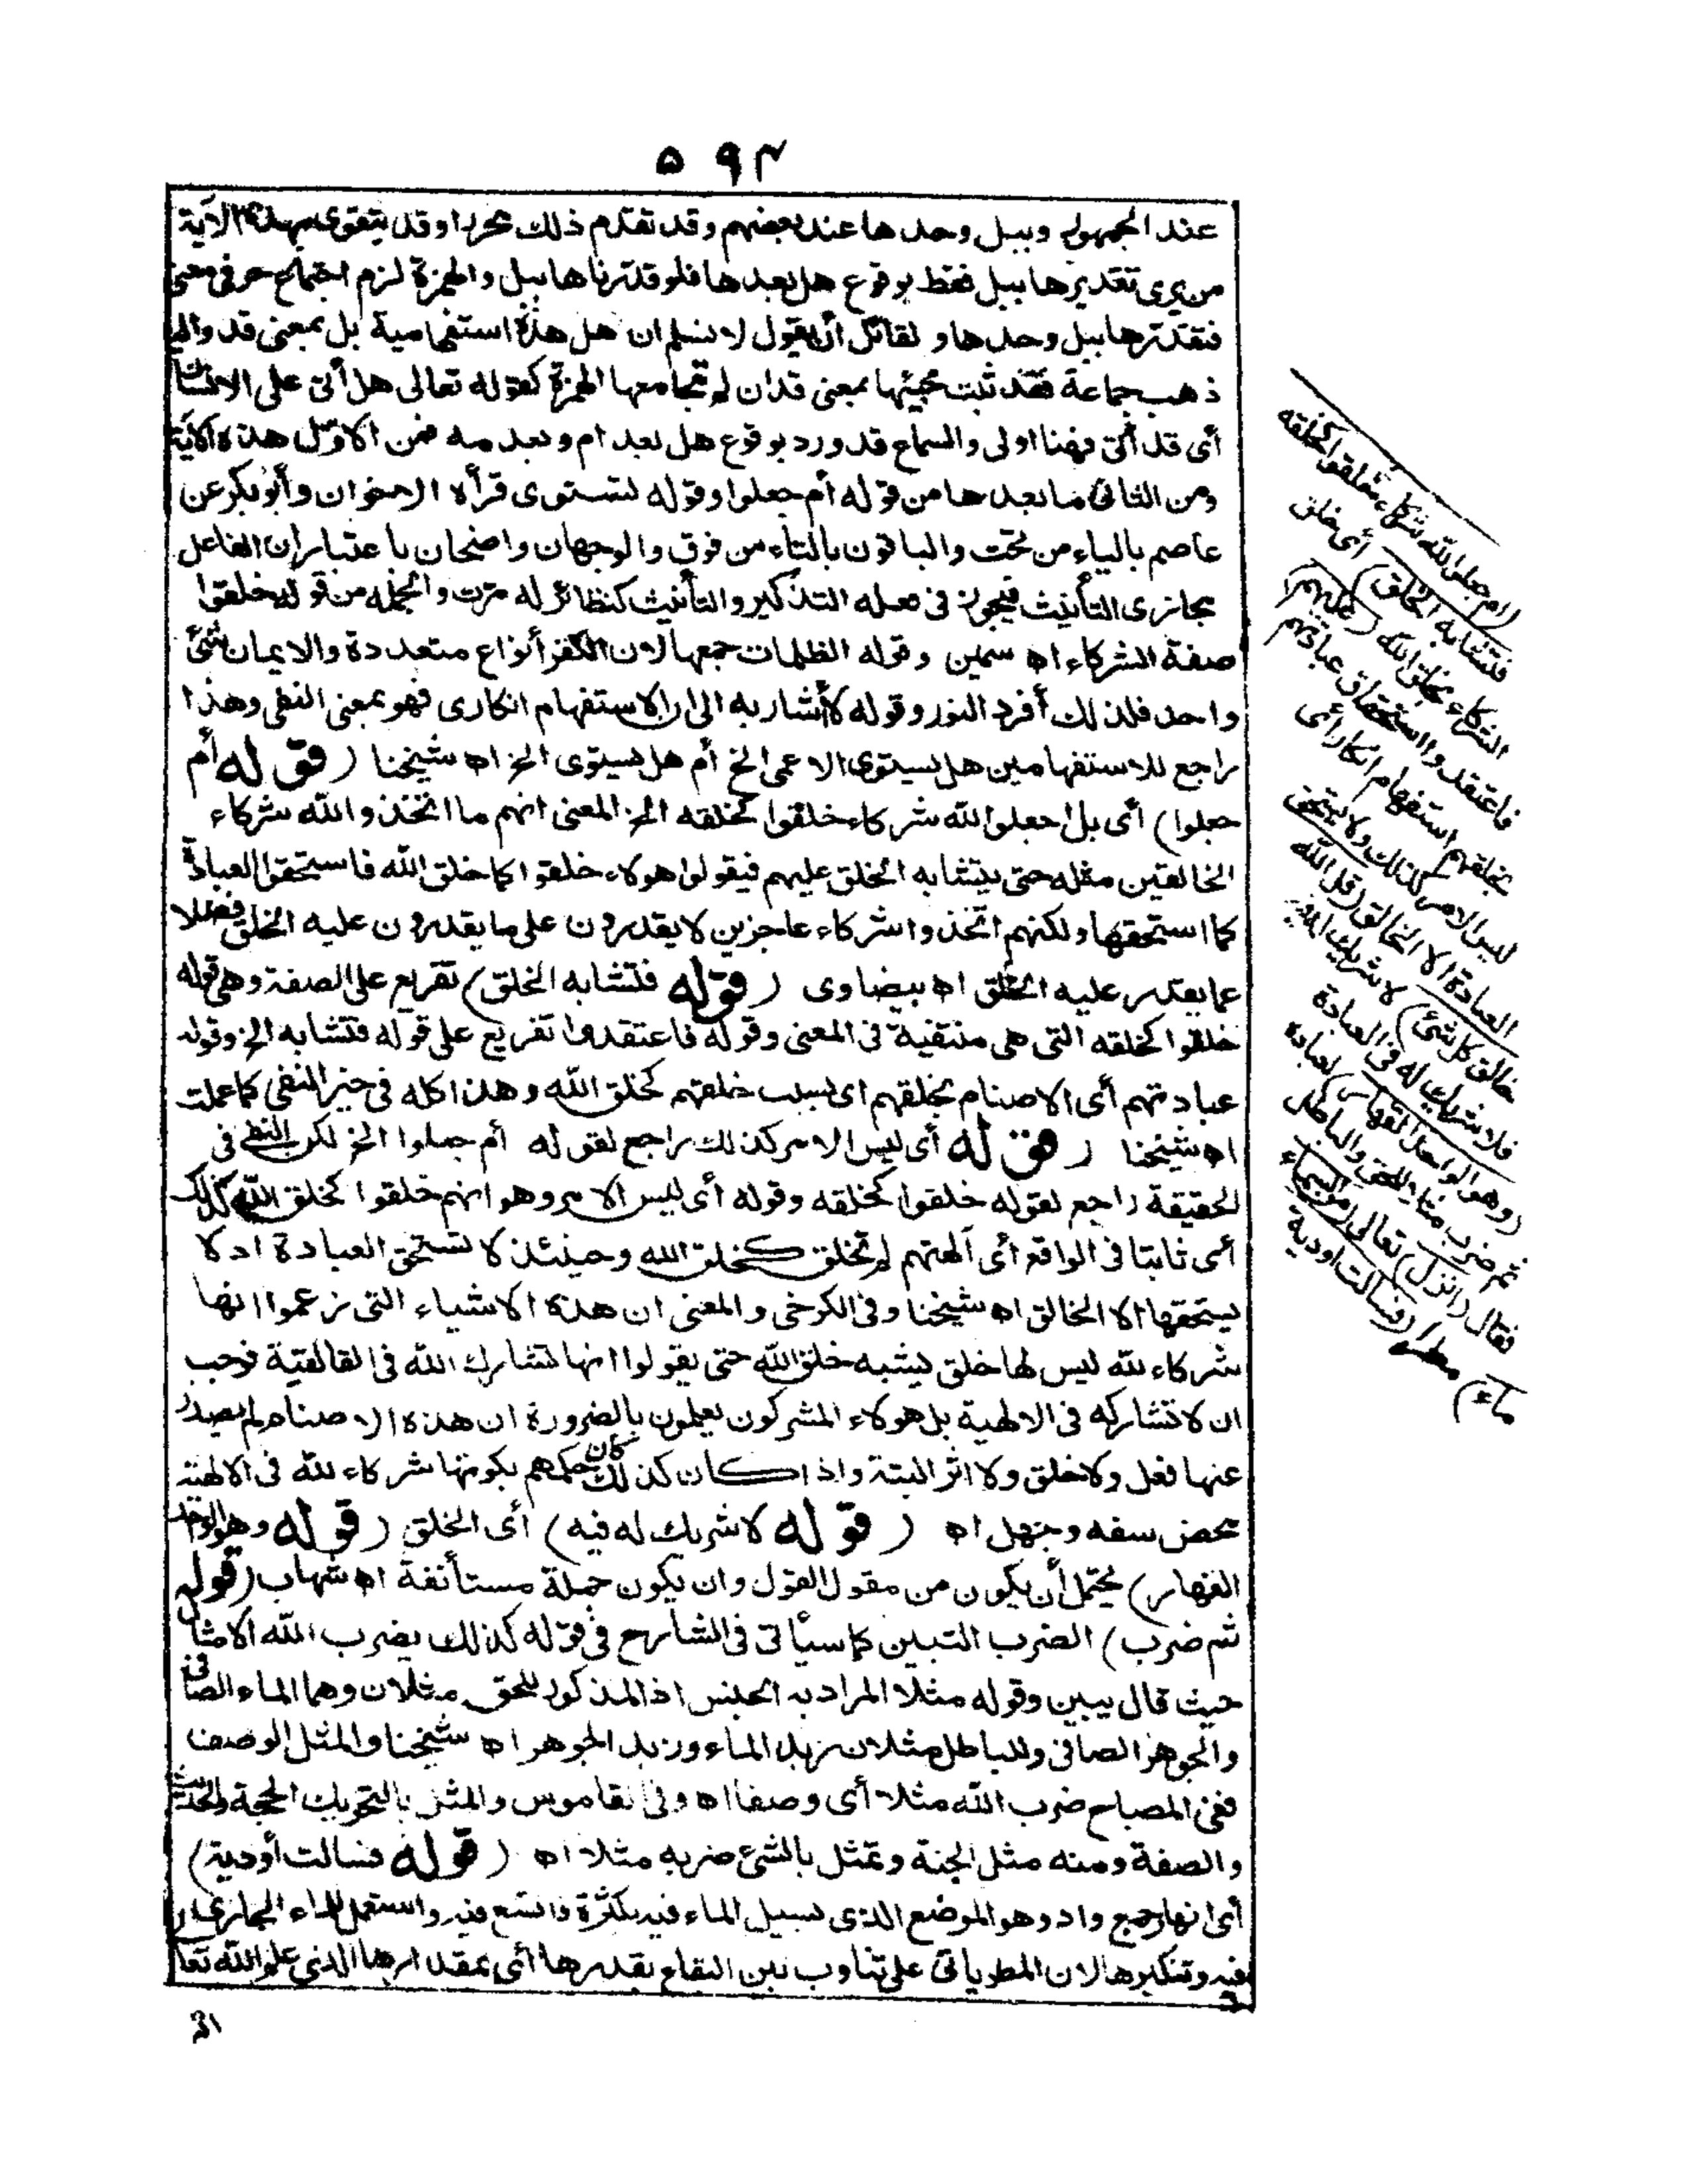 ۵۹۴
عند الجمهور وببل وحدها عند بعضهم وقد تقدم ذلك محررا وقد يتقوى بهذه الآية
من يرى تقديرها ببل فقط بوقوع هل بعدها فلو قدرناها ببل والهمزة لزم اجتماع حرفي معنى
فنقدرها ببل وحدها ولقائل أن يقول لا نسلم ان هل هذه استفهامية بل بمعنى قد واليه
ذهب جماعة فقد ثبت مجيئها بمعنى قد ان لم تجامعها الهمزة كقوله تعالى هل أتى على الانسان
أي قد أتى فهنا اولى والسماع قد ورد بوقوع هل بعد ام وبعدمه فمن الاول هذه الآية
ومن الثاني ما بعدها من قوله أم جعلوا وقوله تستوى قرأه الاخوان وأبو بكر عن
عاصم بالياء من تحت والباقون بالتاء من فوق والوجهان واضحان باعتبار ان الفاعل
مجازى التأنيث فيجوز في فعله التذكير والتأنيث كنظائر له مرت والجملة من قوله خلقوا
صفة الشركاء اه سمين وقوله الظلمات جمعها لان الكفر أنواع متعددة والايمان شئ
واحد فلذلك أفرد النور وقوله لا أشار به الى ان الاستفهام انكارى فهو بمعنى النفى وهذا
راجع للاستفهامين هل يستوى الاعمى الخ أم هل تستوى الخ اه شيخنا (قوله أم
جعلوا) أى بل اجعلوا لله شركاء خلقوا كخلقه الخ المعنى انهم ما اتخذوا لله شركاء
الخالقين مثله حتى يتشابه الخلق عليهم فيقولوا هولاء خلقوا كما خلق الله فاستحقوا العبادة
كما استحقها ولكنهم اتخذوا شركاء عاجزين لا يقدرون على ما يقدرون عليه الخلق فضلا
عما يقدر عليه الخالق اه بيضاوى (قوله فتشابه الخلق) تفريع على الصفة وهى قوله
خلقوا كخلقه التى هى منتفية فى المعنى وقوله فاعتقدوا تفريع على قوله فتشابه الخ وقوله
عبادتهم أى الاصنام بخلقهم اى بسبب خلقهم كخلق الله وهذا كله فى حيز النفى كما علمت
اه شيخنا (قوله أى ليس الامر كذلك راجع لقوله أم جعلوا الخ لكن النفى فى
الحقيقة راجع لقوله خلقوا كخلقه وقوله أى ليس الامر وهو انهم خلقوا كخلق الله كذلك
أى ثابتا فى الواقع أى آلهتهم لم تخلق كخلق الله وحينئذ لا تستحق العبادة اذ لا
يستحقها الا الخالق اه شيخنا وفى الكرخى والمعنى ان هذه الاشياء التى زعموا انها
شركاء لله ليس لها خلق يشبه خلق الله حتى يقولوا انها تشارك الله فى القالقية فوجب
ان لا تشاركه فى الالهية بل هولاء المشركون يعلمون بالضرورة ان هذه الاصنام لم يصدر
عنها فعل ولا خلق ولا اثر البتة واذا كان كذلك كان حكمهم بكونها شركاء لله فى الالهية
محض سفه وجهل اه (قوله لا شريك له فيه) أى الخلق (قوله وهو الواحد
القهار) يحتمل أن يكون من مقول القول وان يكون جملة مستأنفة اه شهاب (قوله
ثم ضرب) الضرب التبيين كما سيأتى فى الشارح فى قوله كذلك يضرب الله الامثال
حيث قال يبين وقوله مثلا المراد به الجنس اذ المذكور للحق مثلان وهما الماء الصافى
والجوهر الصافى وللباطل مثلان زبد الماء وزبد الجوهر اه شيخنا والمثل الوصف
ففى المصباح ضرب الله مثلا أى وصفا اه وفى القاموس والمثل بالتحريك الحجة والحديث
والصفة ومنه مثل الجنة وتمثل بالشئ ضربه مثلا اه (قوله فسالت أودية)
أى انهار جمع واد وهو الموضع الذى يسيل الماء فيه بكثرة فاتسع فيه واستعمل للماء الجارى
فيه وتنكيرها لان المطر ياتى على تناوب بين البقاع بقدرها أى بمقدارها الذى علم الله تعا
(ام جعلوا لله شركاء خلقوا كخلقه
فتشابه الخلق) أى خلق
الشركاء بخلق الله (عليهم)
فاعتقدوا استحقاق عبادتهم
بخلقهم استفهام انكار أى
ليس الامر كذلك ولا يستحق
العبادة الا الخالق (قل الله
خالق كل شئ) لا شريك له فيه
فلا شريك له فى العبادة
(وهو الواحد القهار) لعباده
ثم ضرب مثلا للحق والباطل
فقال (انزل) تعالى (من السماء
ماء) مطرا (فسالت اودية